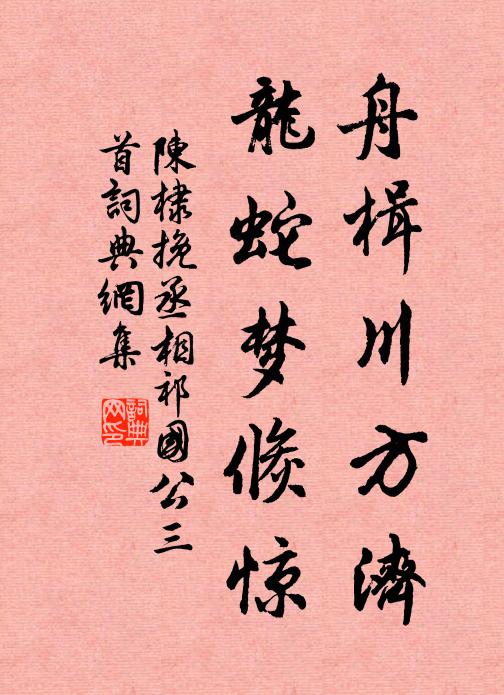 舟楫川方濟
龍蛇梦倏惊
陳棣挽丞相祁國公三
首詞典網集
詞典
网印